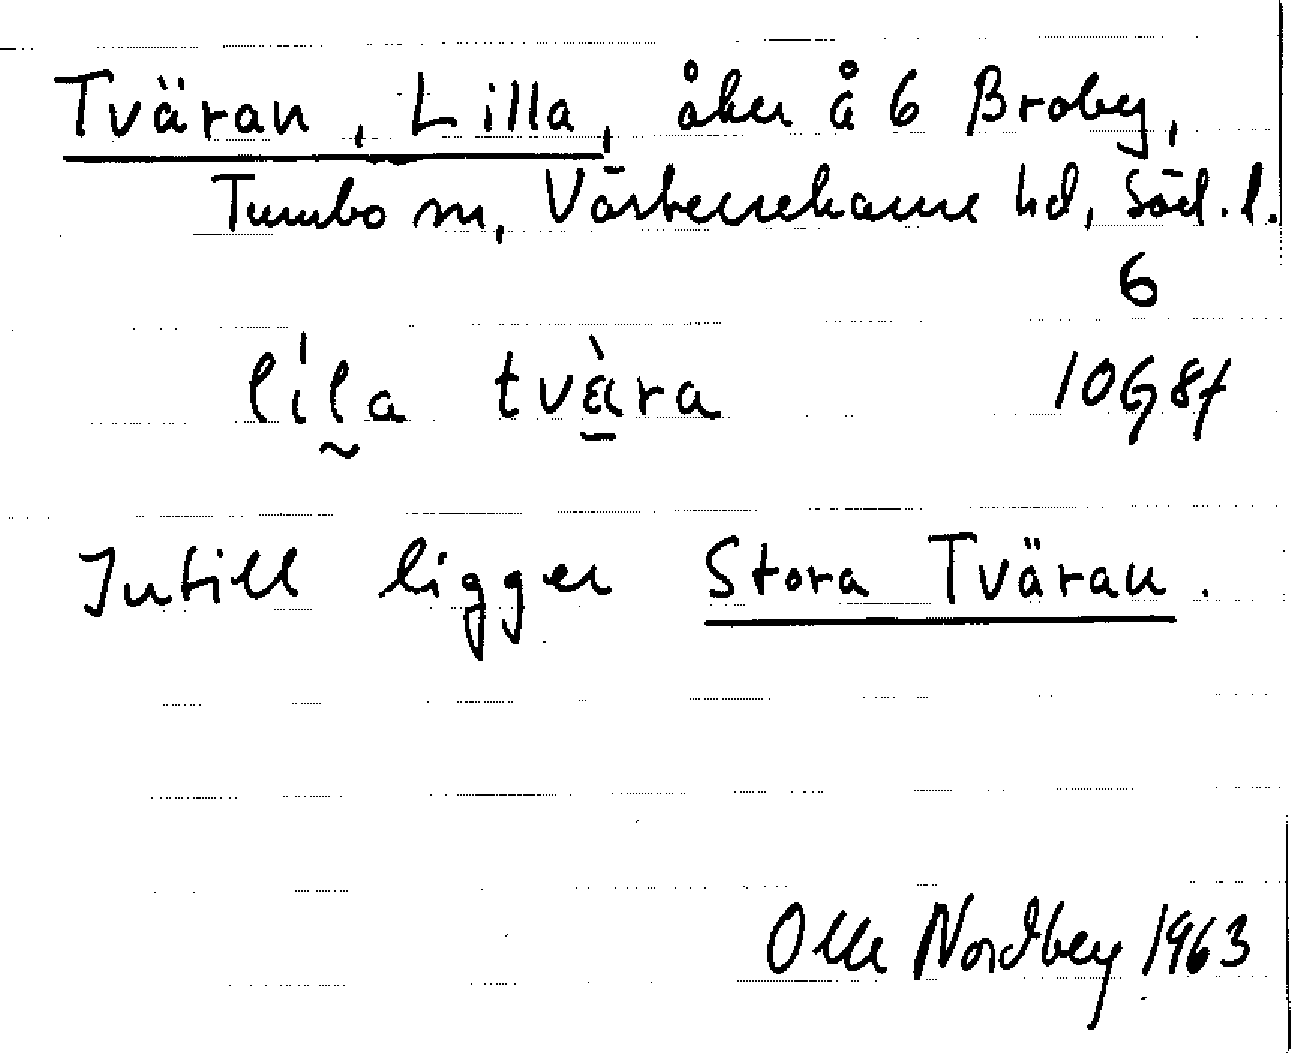 Tväran, Lilla, åker å 6 Broby,
Tumbo sn, Västerrekarne hd, Söd. l.
6
lı́l̰a tvàra 10G8f
Intill ligger Stora Tväran.
Olle Nordbey 1963